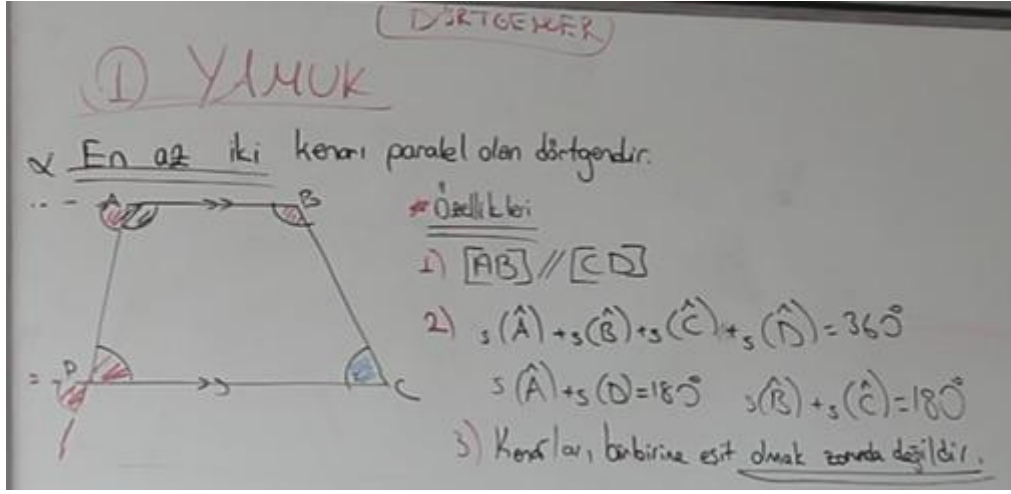 DÖRTGENLER
① YAMUK
α En az iki kenarı paralel olan dörtgendir.
A B
D C
* Özellikleri
1) [AB] // [CD]
2) s(Â) + s(B̂) + s(Ĉ) + s(D̂) = 360°
s(Â) + s(D) = 180° s(B̂) + s(Ĉ) = 180°
3) Kenarları, birbirine eşit olmak zorunda değildir.